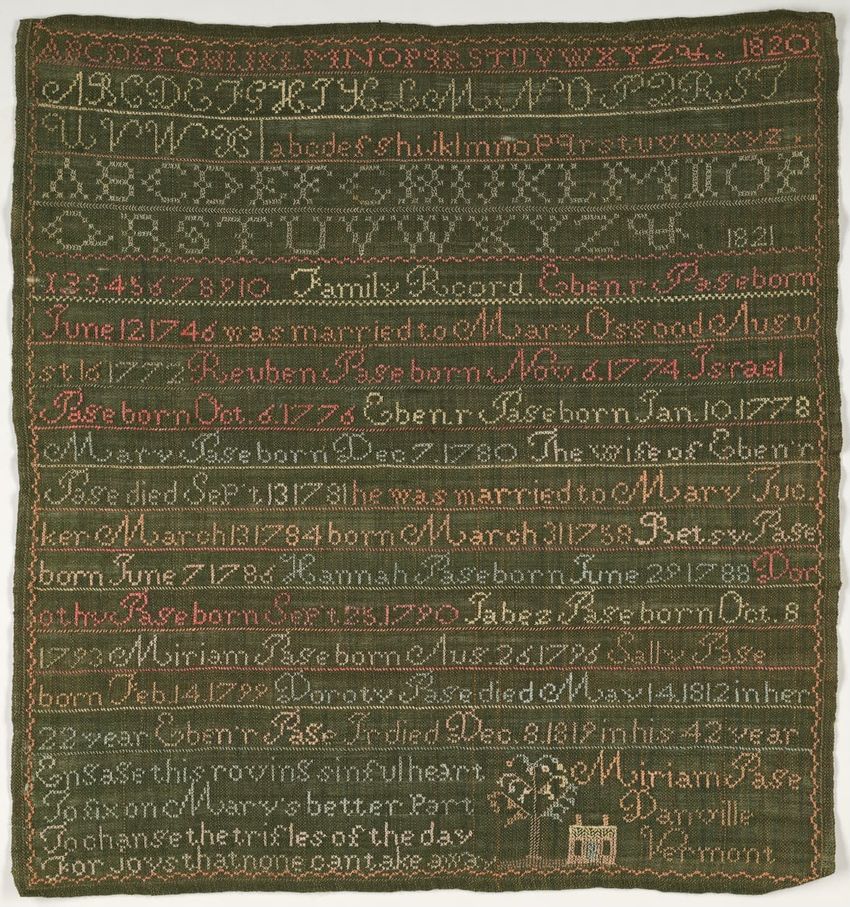 ABCDEFGHIJKLMNOPQRSTUVWXYZ&. 1820
ABCDEFGHIJKLMNOPQRST
UVWX abcdefghijklmnopqrstuvwxyz.
ABCDEFGHIJKLMNOP
QRSTUVWXYZ&. 1821
1.2.3.4.5.6.7.8.9.10 Family Rcord. Eben.r Page born
June 12 1746 was married to Mary Osgood Augu
st.16 1772 Reuben Page born Nov. 6.1774 Israel
Page born Oct. 6.1776 Eben.r Page born Jan.10.1778
Mary Page born Dec 7.1780 The wife of Eben'r
Page died Sep't.13 1781 he was married to Mary Tuc.
ker March 13 1784 born March 31 1758 Betsy Page
born June 7 1786 Hannah Page born June 29 1788 Dor
othy Page born Sep't.25.1790 Jabez Page born Oct. 8
1793 Miriam Page born Aug.26.1796 Sally Page
born Feb.14.1799 Doroty Page died May 14.1812 in her
22 year Eben'r Page Jr died Dec. 8 1819 in his 42 year
Engage this roving sinful heart
To fix on Mary's better part
To change the trifles of the day
For joys that none can take away
Miriam Page
Danville
Vermont